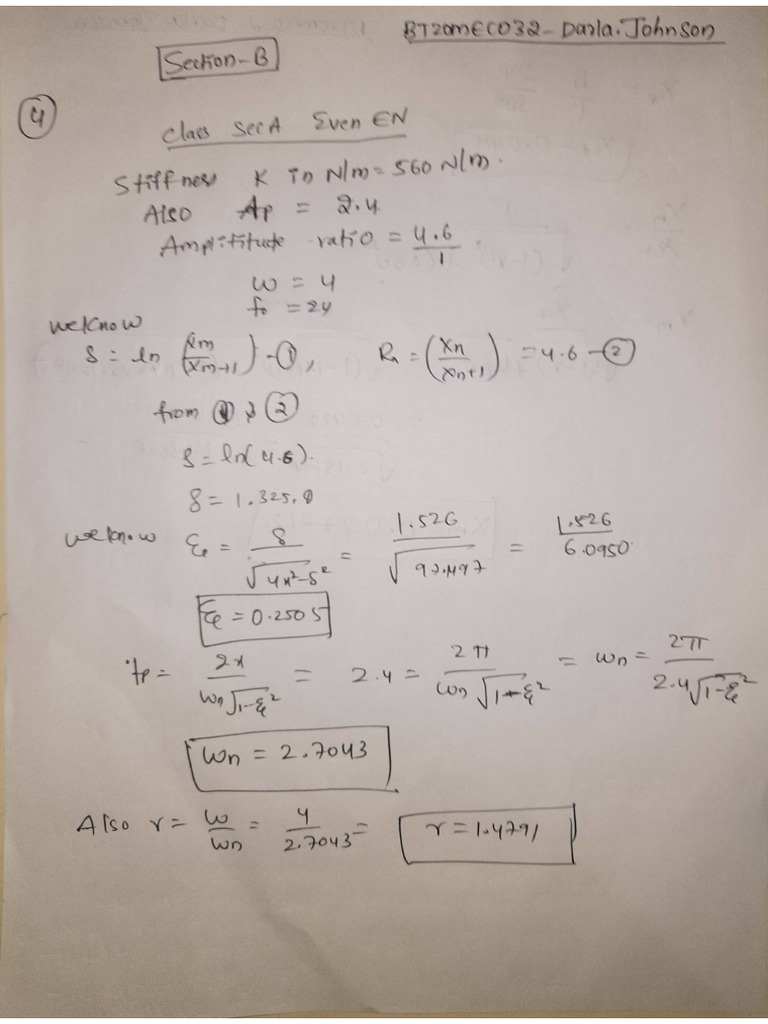 BT20MEC032 - Darla. Johnson
Section-B
4
class Sec A Even EN
Stiffness K in N/m = 560 N/m.
Also Ap = 2.4
Ampltitude ratio = 4.6/1
ω = 4
fo = 24
we know
δ = ln (Xm/Xm+1) - ①, Rn = (Xn/Xn+1) = 4.6 - ②
from ① & ②
δ = ln(4.6).
δ = 1.325.
we know ξ = δ/√4π²-δ² = 1.526/√97.497 = 1.526/6.0950
ξ = 0.2505
tp = 2π/ωn√1-ξ² = 2.4 = 2π/ωn√1-ξ² = ωn = 2π/2.4√1-ξ²
ωn = 2.7043
Also r = ω/ωn = 4/2.7043 = r = 1.4791